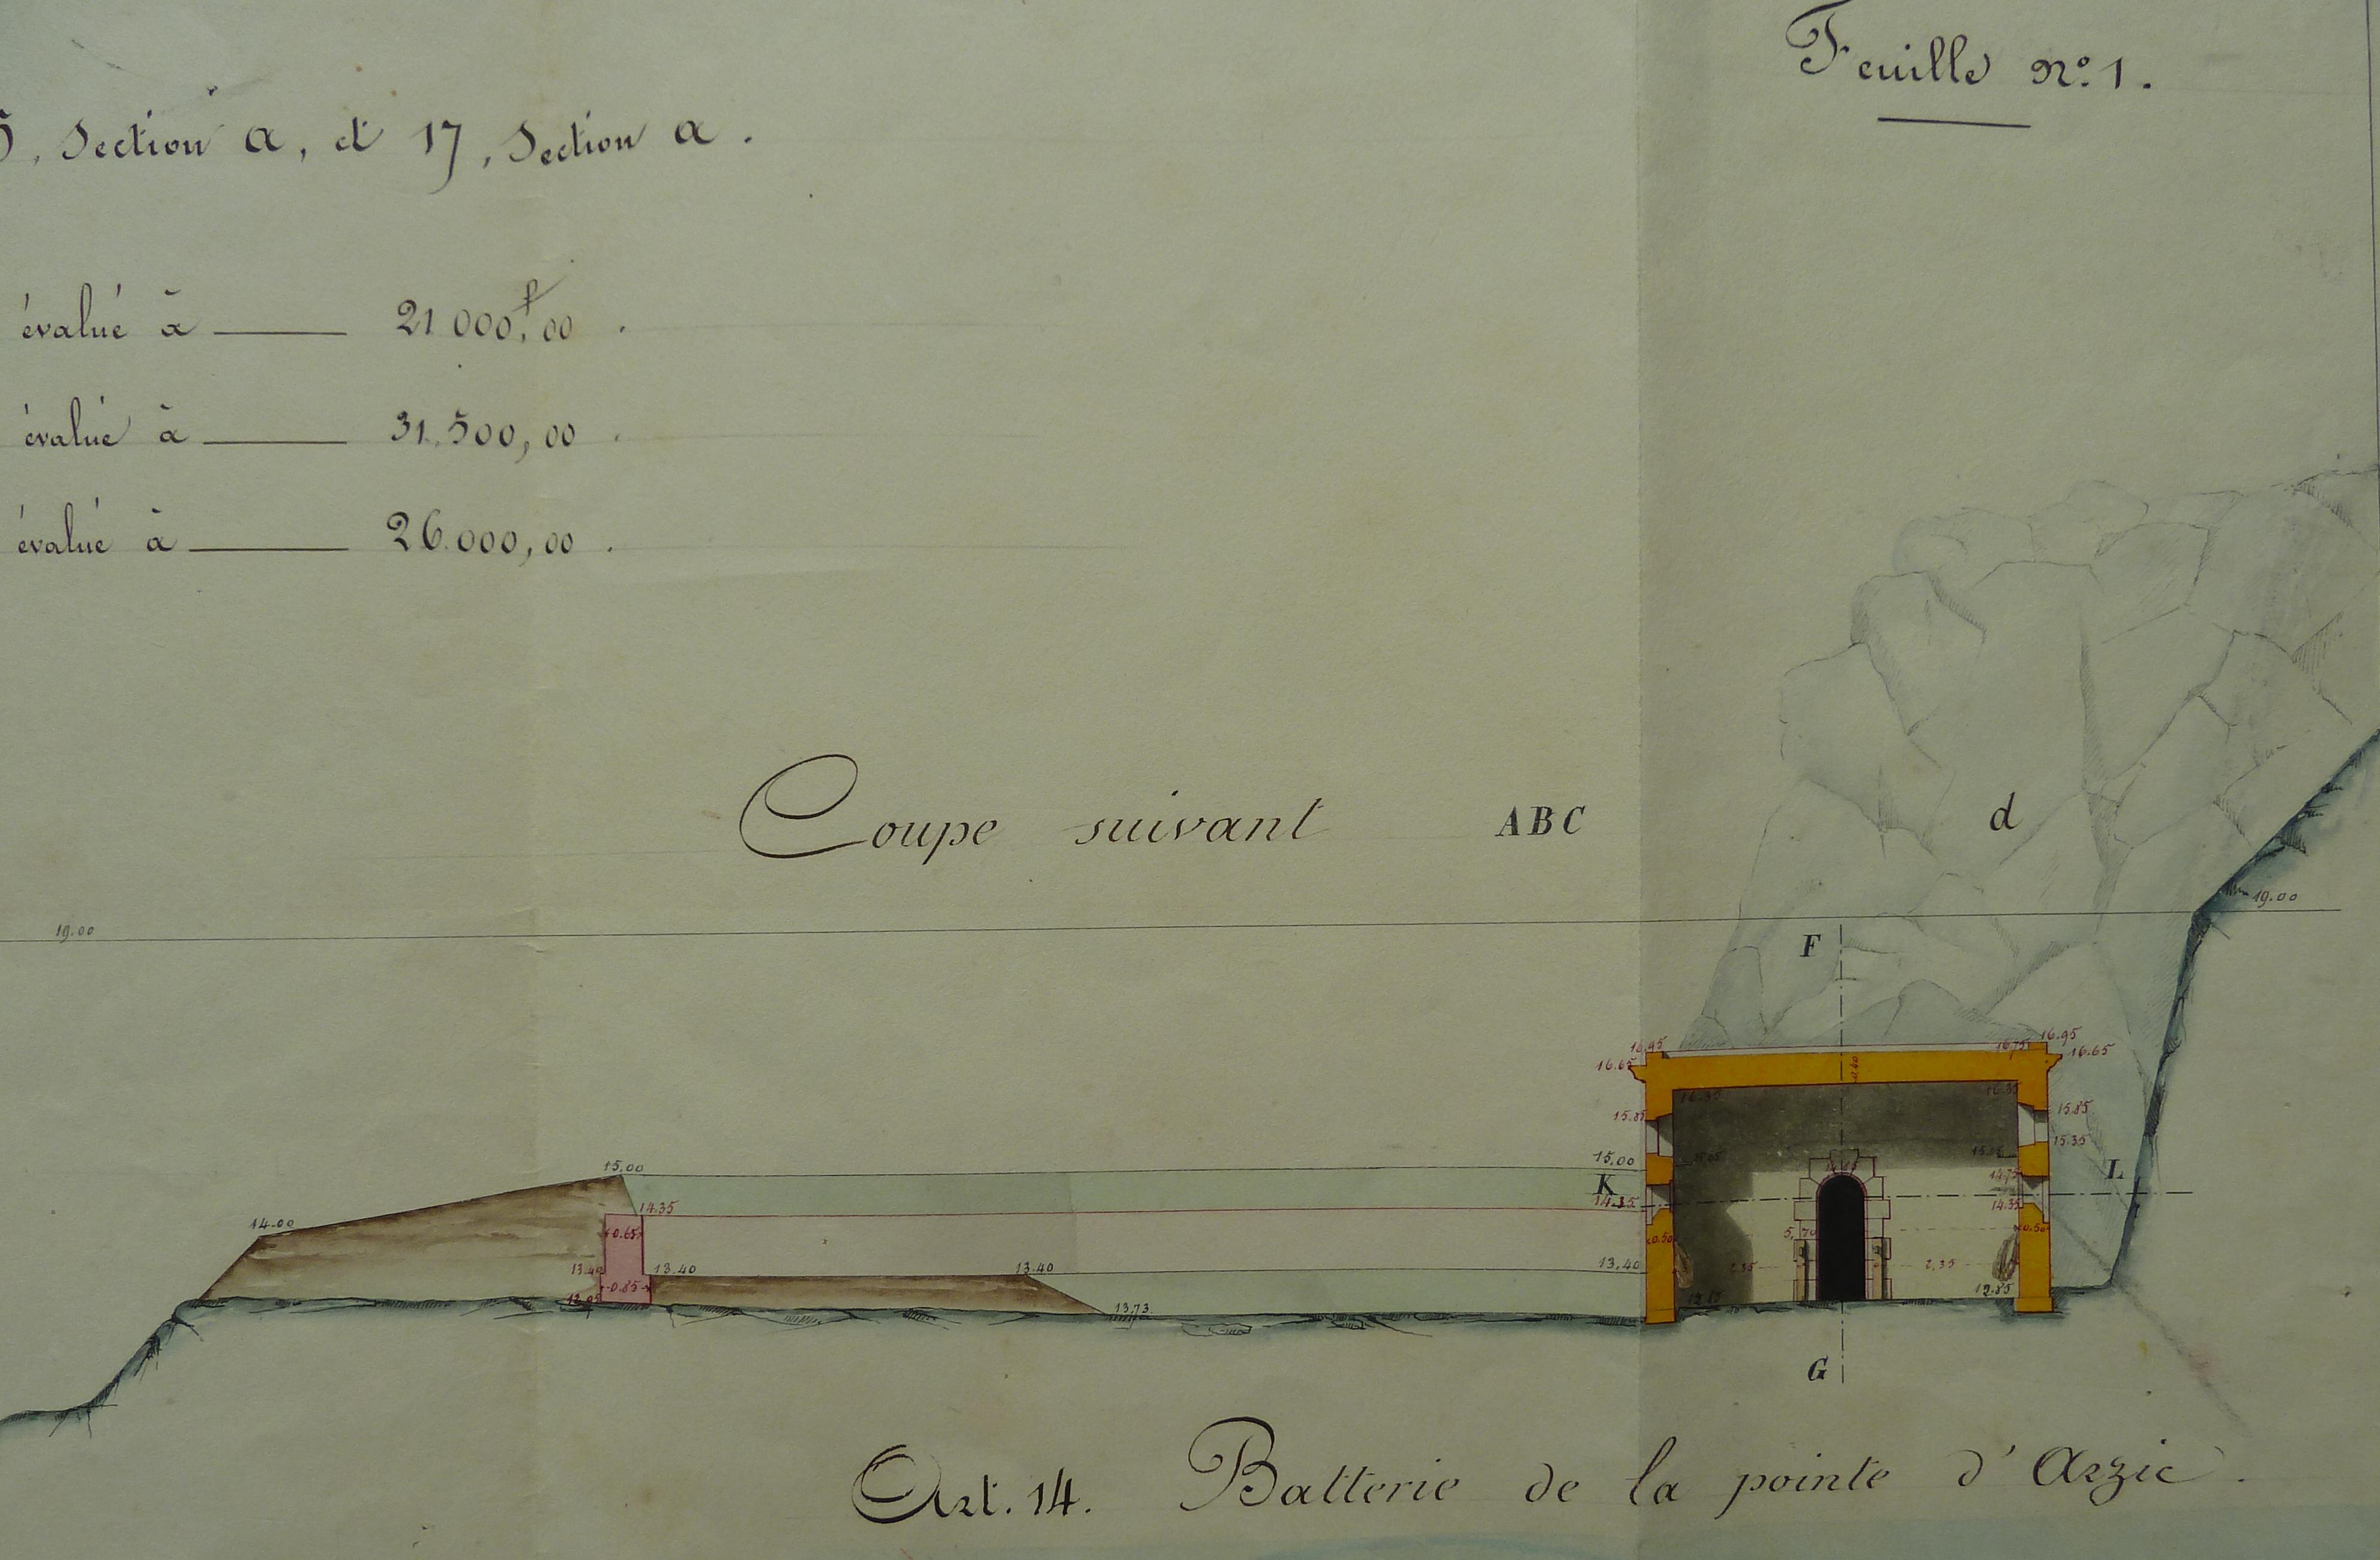 Feuille n° 1.
5, Section a, et 17, Section a.
évalué à 21 000,f00.
évalué à 31.500,00.
évalué à 26.000,00.
Coupe suivant ABC
d
19.00
19.00
F
16.95
16.75
16.95
16.65
16.65
0.60
16.35
16.35
15.85
15.85
15.35
15.00
15.00
14.75
K
L
14.35
14.35
14.35
14.00
0.65
0.50
0.50
5,70
13.40
13.40
13.40
13.40
2,35
2,35
0.85
12.85
12.85
13.73
G
Art. 14. Batterie de la pointe d'Arzic.